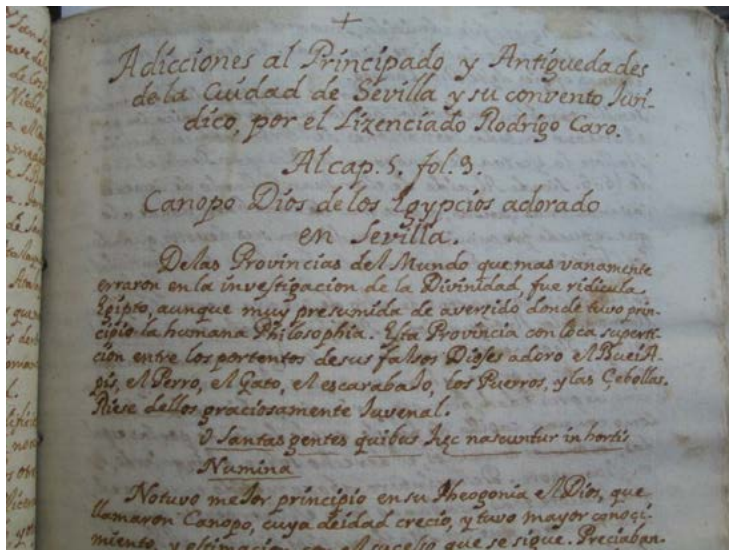 Adicciones al Principado y Antiguedades
de la Cuidad de Sevilla y su convento Juri-
dico, por el Lizenciado Rodrigo Caro.
Al cap. 5. fol. 3.
Canopo Dios de los Egypcios adorado
en Sevilla.
De las Provincias del Mundo que mas vanamente
erraron en la investigacion de la Divinidad, fue ridicula
Egipto, aunque muy presumida de aver sido donde tuvo prin-
cipio la humana Philosophia. Esta Provincia con loca supersti-
cion entre los portentos de sus falsos Dioses adoro el Buei A-
pis, el Perro, el Gato, el escarabajo, los Puerros, y las Çebollas.
Riese dellos graciosamente Juvenal.
O Santas gentes quibus hęc nascuntur in hortis
Numina
No tuvo mejor principio en su Theogonia el Dios, que
llamaron Canopo, cuya deidad crecio, y tuvo mayor conoci-
miento, y estimacion con el suceso que se sigue. Preciaban-